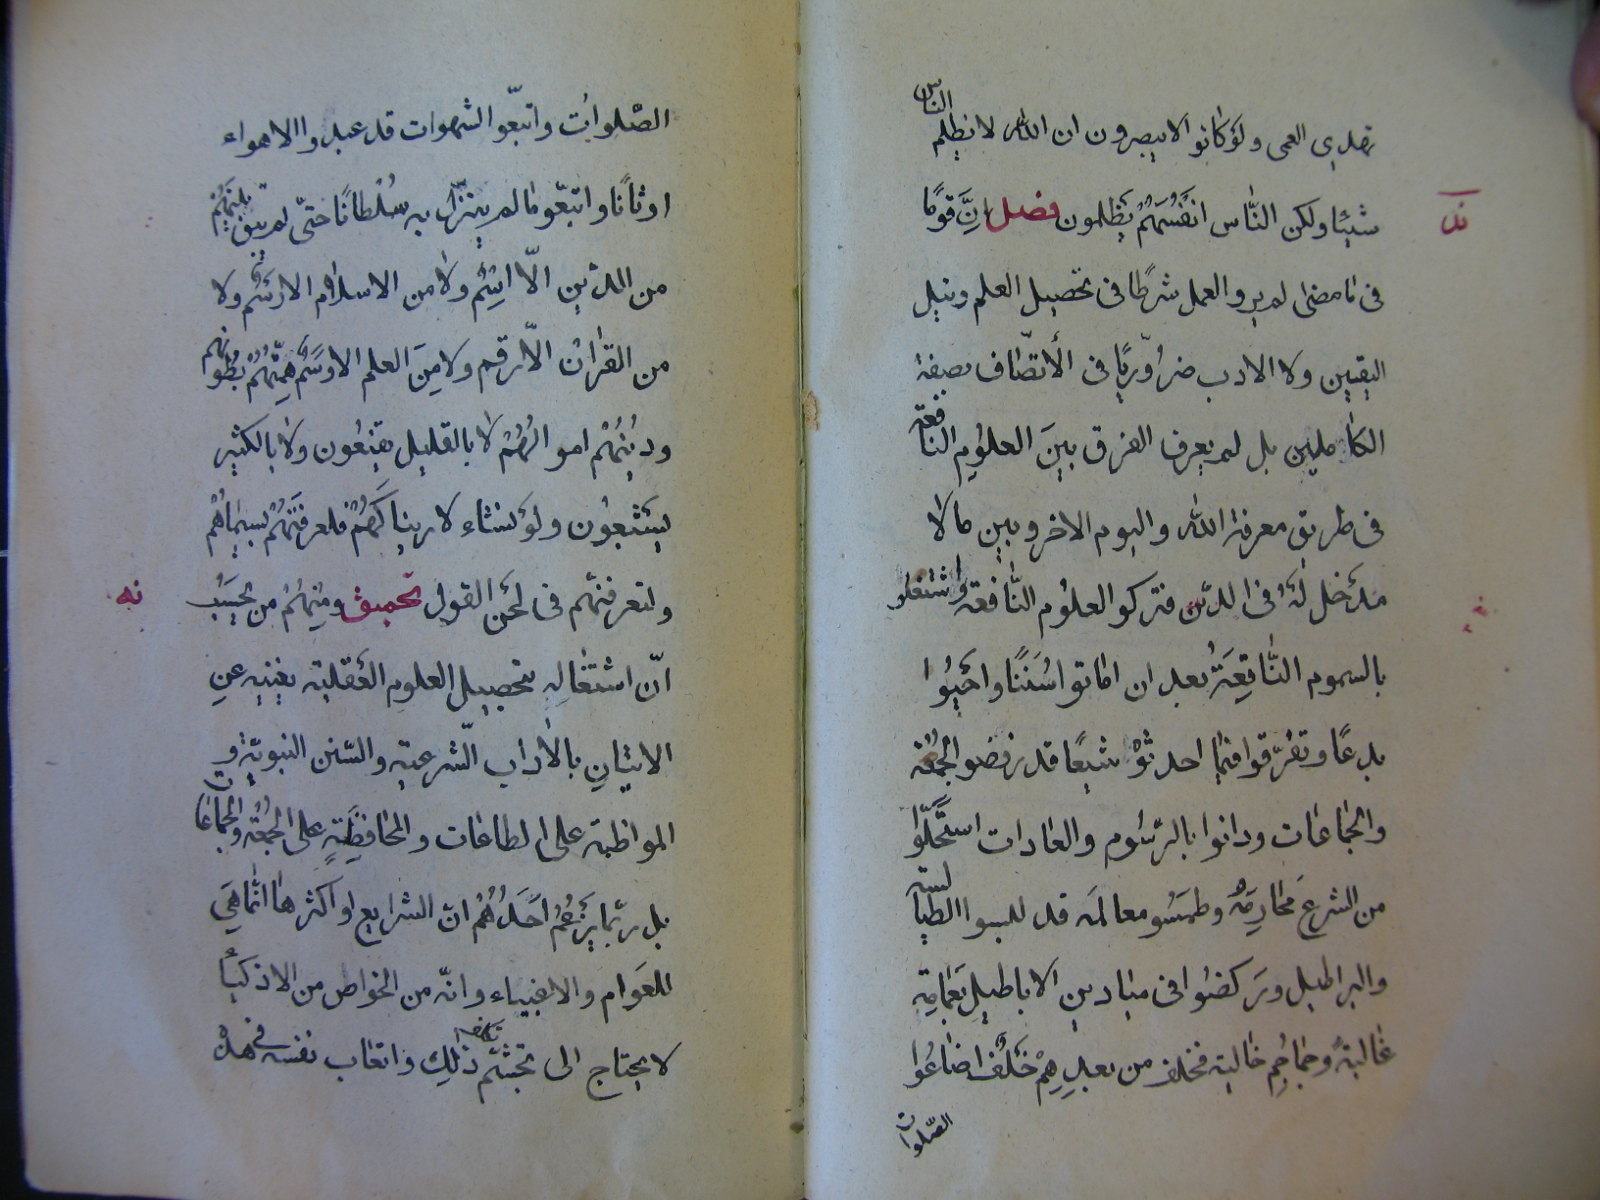 تهدي العمى ولو كانوا لا يبصرون ان الله لا يظلم الناس
شيئا ولكن الناس انفسهم يظلمون فصل ان قوما
ند
فى ما مضى لم يروا العمل شرطا فى تحصيل العلم ونيل
اليقين ولا الادب ضروريا فى الاتصاف بصفة
الكاملين بل لم يعرف الفرق بين العلوم النافعة
فى طريق معرفة الله واليوم الاخر وبين ما لا
مدخل له فى الدين فتركوا العلوم النافعة واشتغلوا
بالسموم الناقعة بعد ان اماتوا سننا واحيوا
بدعا وتفرقوا فيما احدثوا شيعا قد رفضوا الجمعة
والجماعات ودانوا بالرسوم والعادات استحلوا
من الشرع محارمه وطمسو معالمه قد للبسوا الطيالسة
والبراطيل وركضوا فى ميادين الاباطيل بعمايم
غالية وجماجم خالية فخلف من بعدهم خلف اضاعوا
الصلوات
الصلوات واتبعوا الشهوات قد عبدوا الاهواء
اوثانا واتبعوا ما لم ينزل به سلطانا حتى لم يبق بينهم
من الدين الا اسم ولا من الاسلام الا رسم ولا
من القران الا رقم ولا من العلم الا وسم همتهم بطونهم
ودينهم اموالهم لا بالقليل يقنعون ولا بالكثير
يشبعون ولو نشاء لاريناكهم فلعرفتهم بسيماهم
ولتعرفنهم فى لحن القول تحميق ومنهم من يحسب
نه
ان اشتغاله بتحصيل العلوم العقلية يغنيه عن
الاتيان بالاداب الشرعية والسنن النبوية و
المواظبة على الطاعات والمحافظة على الجمعة والجماعات
بل ربما يزعم احدهم ان الشرايع او اكثرها انما هي
للعوام والاغبياء وانه من الخواص من الاذكياء
لا يحتاج الى تجشم تكلف ذلك واتعاب نفسه فى هذه